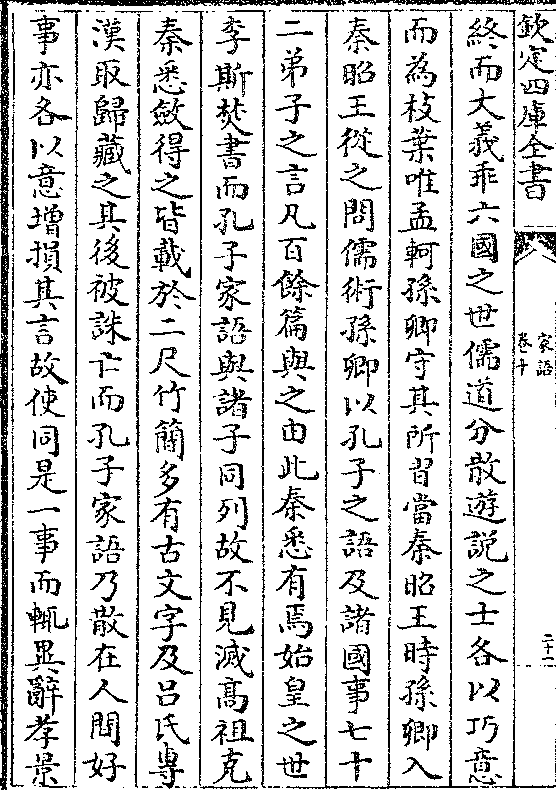 欽定四庫全書
家語
卷十
二十二
終而大義乖六國之世儒道分散遊説之士各以巧意
而為枝葉唯孟軻孫卿守其所習當秦昭王時孫卿入
秦昭王從之問儒術孫卿以孔子之語及諸國事七十
二弟子之言凡百餘篇與之由此秦悉有焉始皇之世
李斯焚書而孔子家語與諸子同列故不見滅高祖克
秦悉斂得之皆載於二尺竹簡多有古文字及吕氏専
漢取歸藏之其後被誅亡而孔子家語乃散在人間好
事亦各以意增損其言故使同是一事而輒異辭孝景